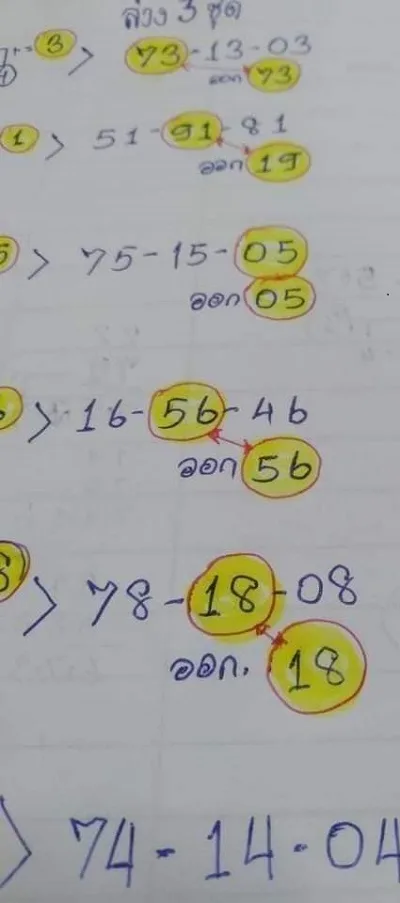 ล่าง 3 ชุด
3 > 73-13-03
ออก 73
1 > 51-91-81
ออก 19
5 > 75-15-05
ออก 05
> 16-56-46
ออก 56
8 > 78-18-08
ออก. 18
> 74-14-04